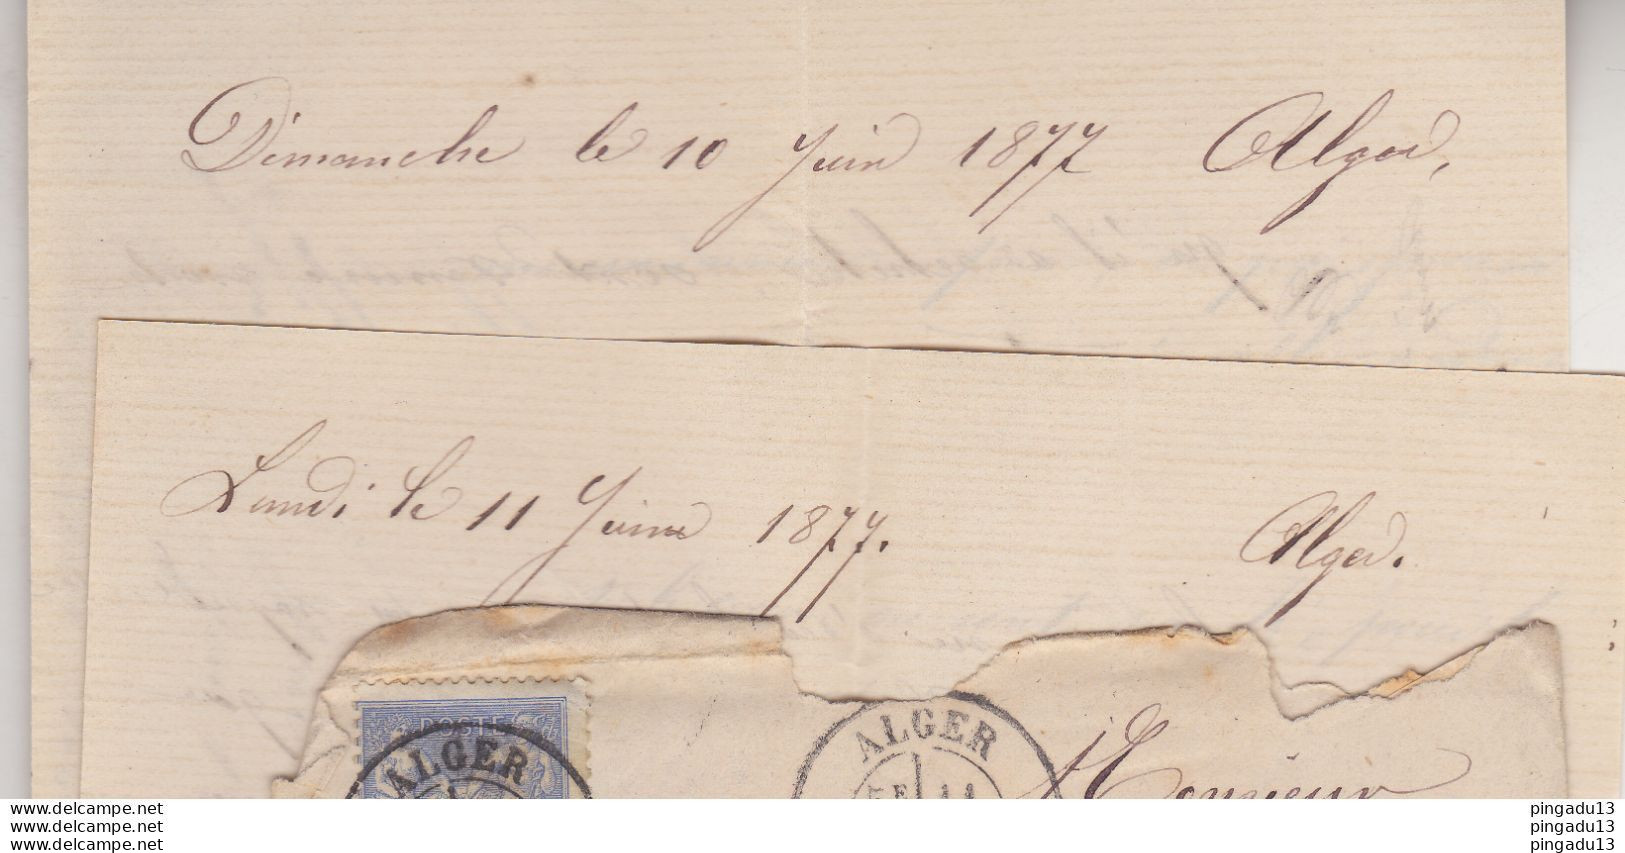 Dimanche le 10 Juin 1877 Alger,
Lundi le 11 Juin 1877. Alger.
POSTE
ALGER
ALGER
5E 11
Monsieur
delcampe.net pingadu13
delcampe.net pingadu13
delcampe.net pingadu13